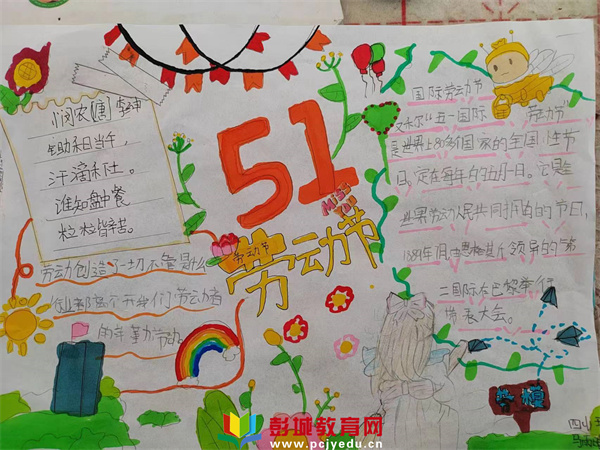 悯农[唐]李绅
锄禾日当午,
汗滴禾土。
谁知盘中餐
粒粒皆辛苦。
劳动创造了一切不管是什么
创业都离不开我们劳动者
的辛勤劳动。
51
劳动节
劳动节
国际劳动节
又水尔“五一国际劳动节”
是世界上80多个国家的全国性节
日,定在每年的五月一日。它是全
世界劳动人民共同拥有的节日,
1889年7月,由恩格其个领导的第
二国际在巴黎举行
代表大会。
彭城教育网
www.pcjyedu.cn